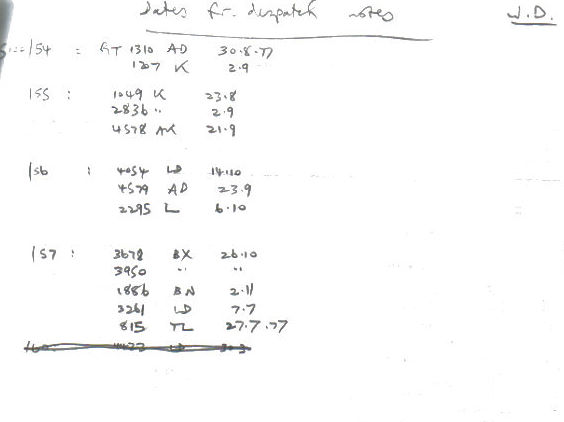 dates fr. despatch notes W.D.
/54 : GT 1310 AD 30.8.77
1207 K 2.9
155 : 1049 K 23.8
2836 " 2.9
4578 AK 21.9
156 : 4054 LD 14.10
4579 AD 23.9
2295 L 6.10
157 : 3678 BX 26.10
3950 " "
1886 BN 2.11
3261 LD 7.7
815 TL 27.7.77